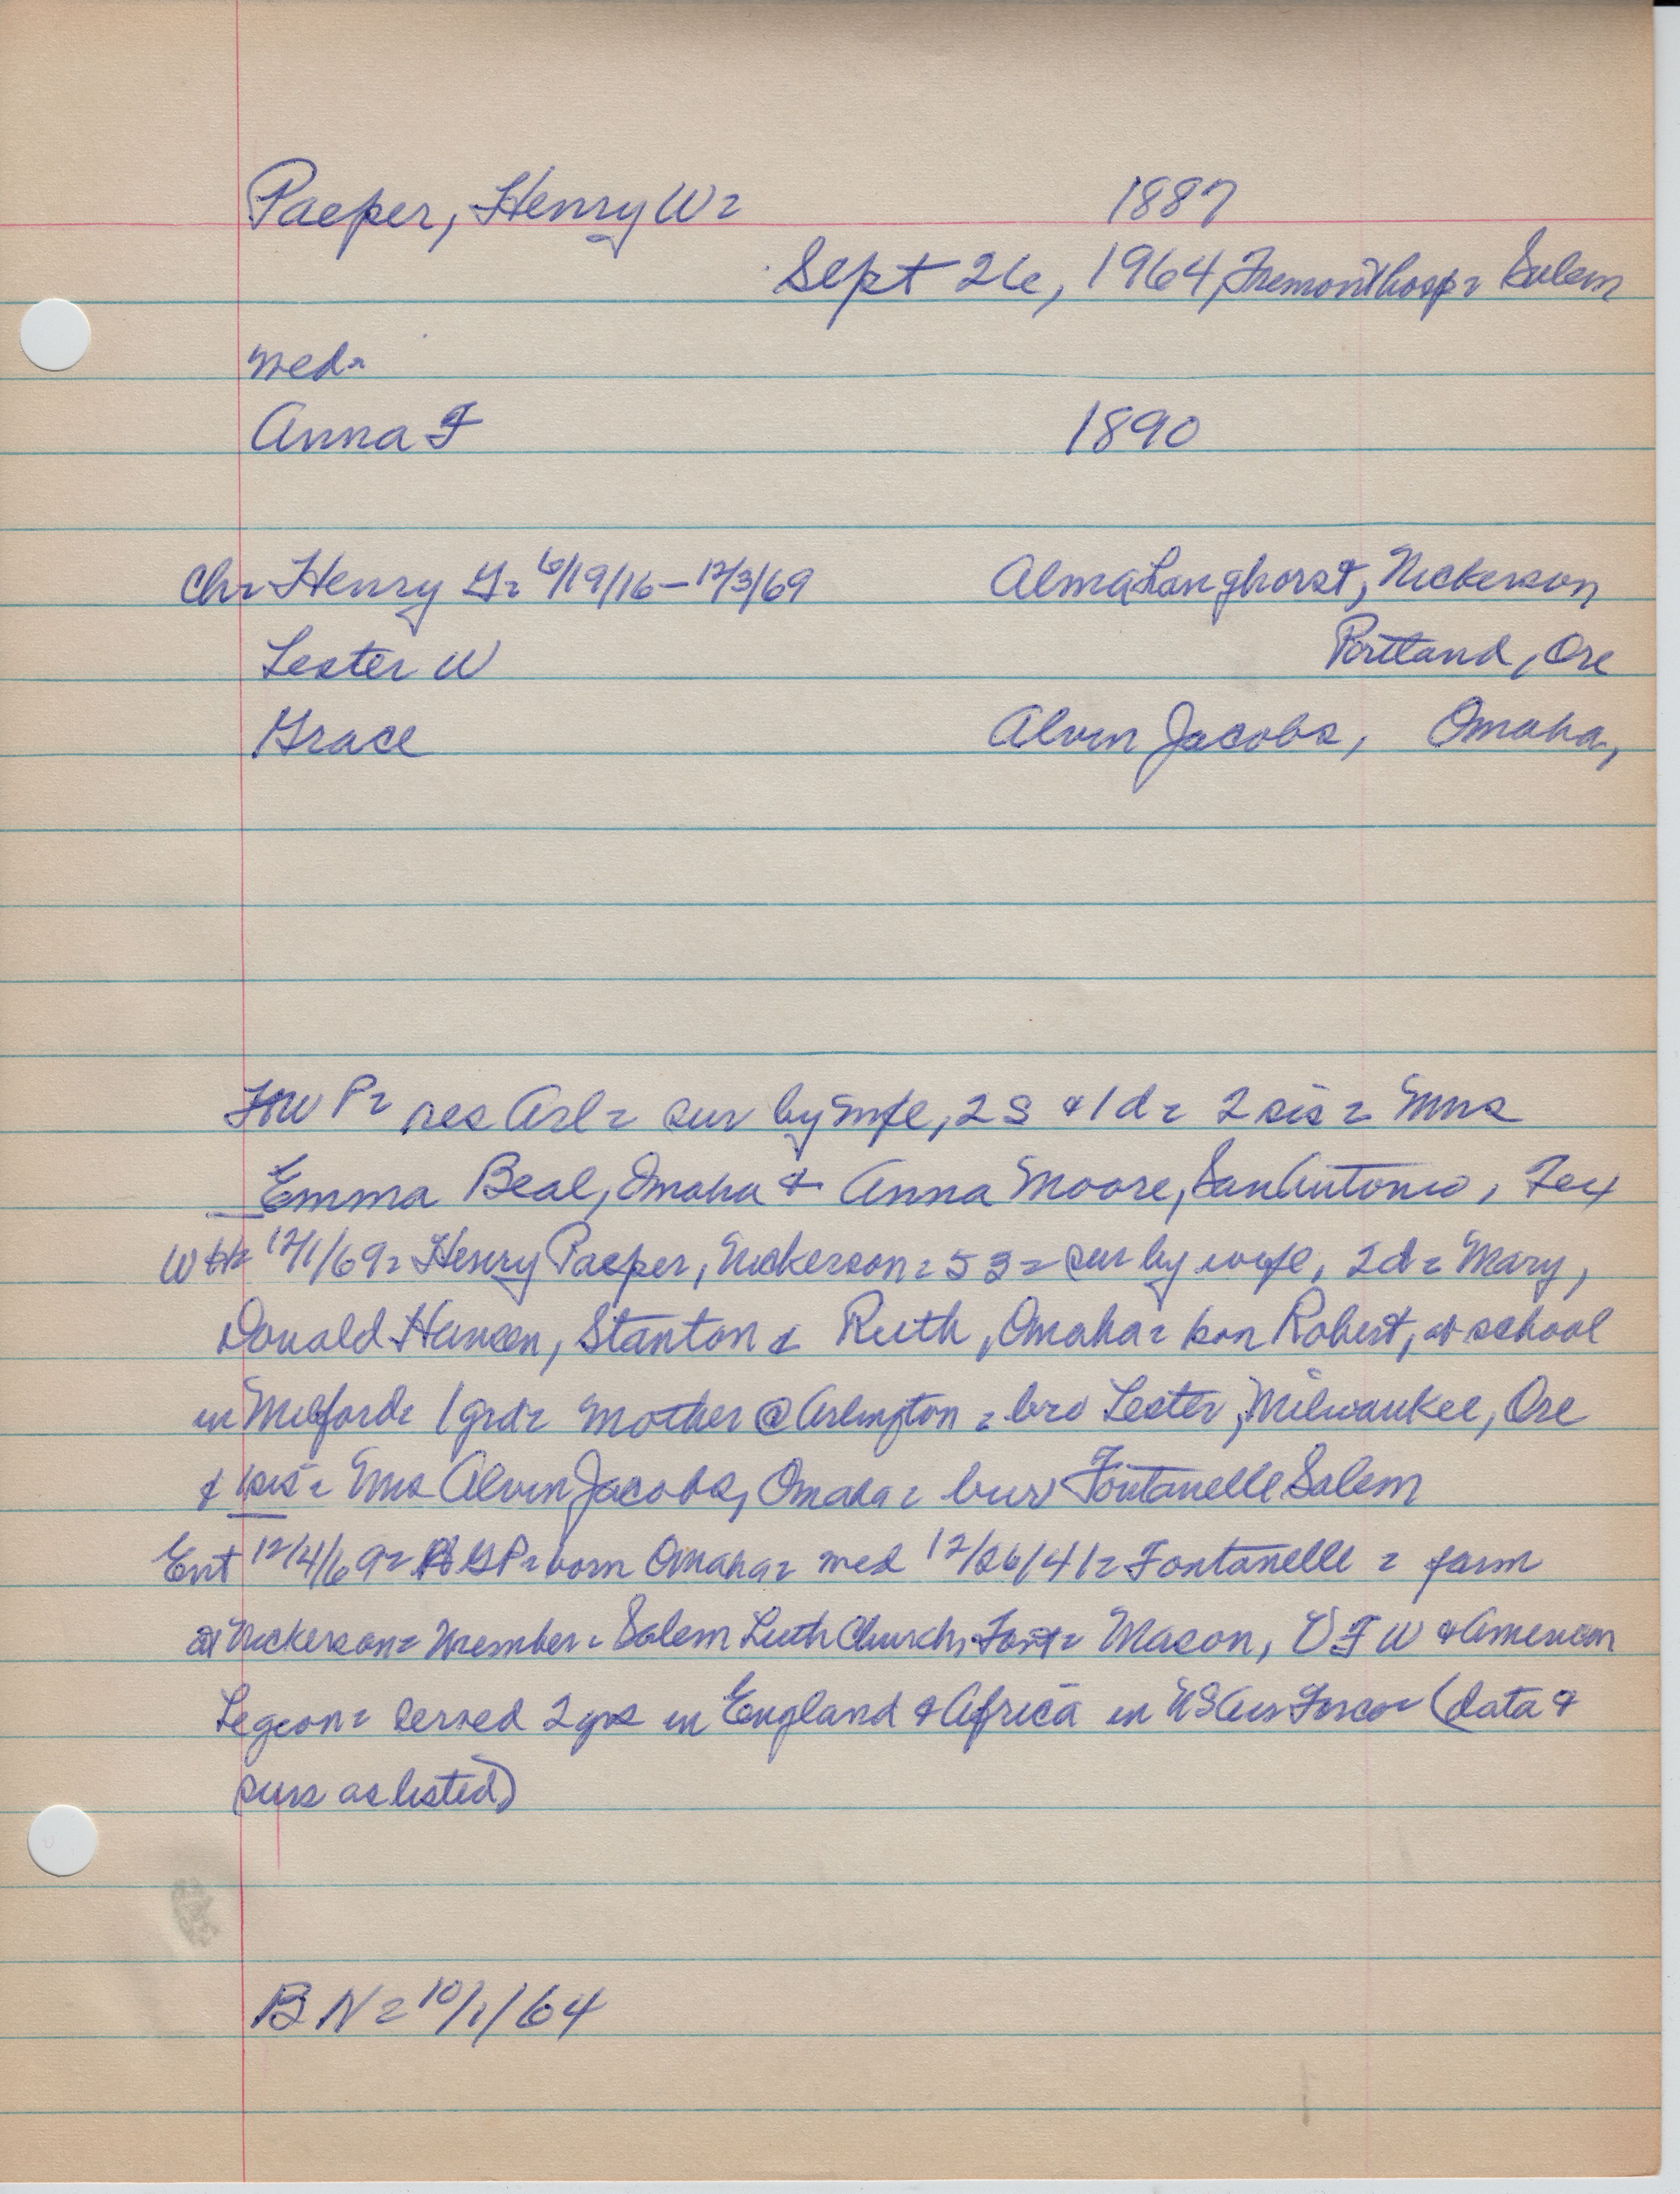 Paeper, Henry W = 1887
Sept 26, 1964, Fremont hosp = Salem
med =
Anna F 1890
Ch = Henry G = 6/19/16 - 12/3/69 Alma Langhorst, Nickerson
Lester W Portland, Ore
Grace Alvin Jacobs, Omaha,
HW P = res Arl = sur by wfe, 2 S & 1 d = 2 sis = Mrs
Emma Beal, Omaha & Anna Moore, San Antonio, Tex
12/1/69 = Henry Paeper, Nickerson = 53 = sur by wife, 2d = Mary,
Donald Hansen, Stanton & Ruth, Omaha = son Robert, at school
in Milford = 1 grd = Mother @ Arlington = bro Lester, Milwaukee, Ore
& 1 sis = Mrs Alvin Jacobs, Omaha = bur Fontanelle Salem
Ent 12/4/69 = GP = born Omaha = med 12/26/41 = Fontanelle = farm
at Nickerson = Member = Salem Luth Church, Font = Mason, VFW & American
Legion = served 2 yrs in England & Africa in US Air Force = (data &
surs as listed)
BN = 10/1/64